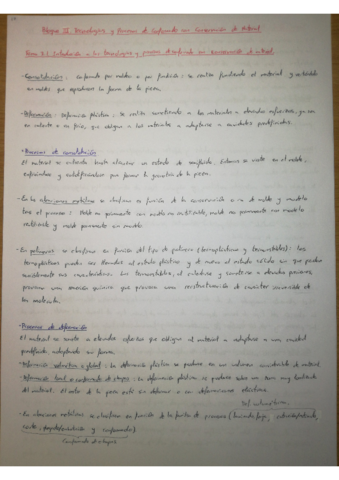 Bloque II. Tecnologías y Procesos de Conformado con Conservación de Material
Tema 3.1. Introducción a las tecnologías y procesos de conformado con conservación de material
- Consolidación: Conformado por moldeo o por fundición: se realiza fundiendo el material y vertiéndolo
en moldes que reproducen la forma de la pieza.
- Deformación: Deformación plástica: Se realiza sometiendo a los materiales a elevados esfuerzos, ya sea
en caliente o en frío, que obligan a los materiales a adaptarse a cavidades predefinidas.
Procesos de consolidación
El material se calienta hasta alcanzar un estado de semifluido. Entonces se vierte en el molde,
enfriándose y solidificándose para formar la geometría de la pieza.
- En las aleaciones metálicas se clasifican en función de la conservación o no de molde y modelo
tras el proceso: Molde no permanente con modelo no reutilizable, molde no permanente con modelo
reutilizable y molde permanente sin modelo.
- En polímeros se clasifican en función del tipo de polímero (termoplásticos y termoestables): Los
termoplásticos pueden ser llevados al estado plástico y de nuevo al estado sólido sin que pierdan
sus características. Los termoestables, al calentarse y someterse a elevadas presiones,
provocan una reacción química que provoca una reestructuración de carácter irreversible de
las moléculas.
Procesos de deformación
El material se somete a elevados esfuerzos que obligan al material a adaptarse a una cavidad
predefinida adoptando su forma.
- Deformación volumétrica o global: La deformación plástica se produce en un volumen considerable de material
- Deformación local o conformado de chapa: La deformación plástica es producida sobre un área muy localizada
del material. El resto de la pieza está sin deformar o con deformaciones elásticas.
- En aleaciones metálicas se clasifican en función de la familia de procesos (laminado, forja,
corte, y conformado)
Conformado de chapa